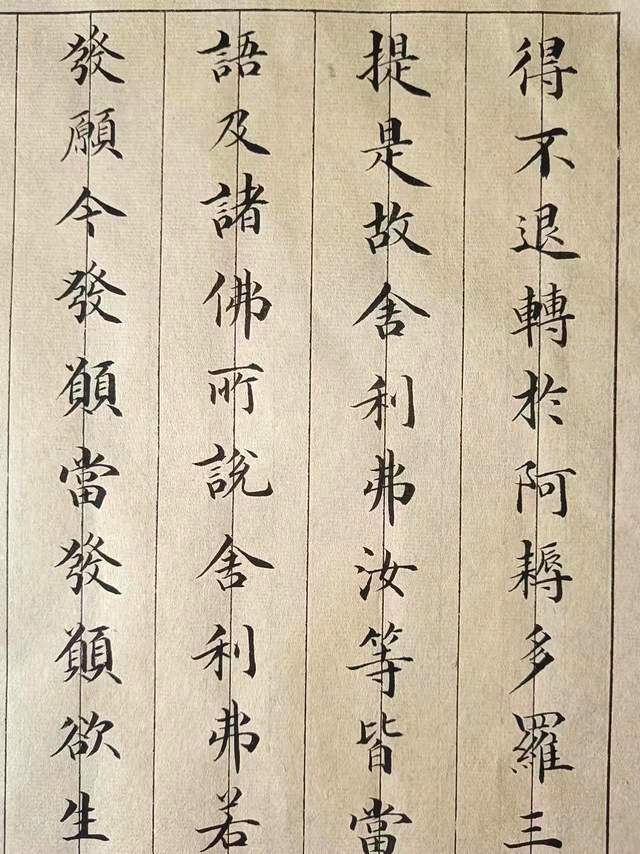 得不退轉於阿耨多羅三
提是故舍利弗汝等皆當
語及諸佛所說舍利弗若
發願今發願當發願欲生